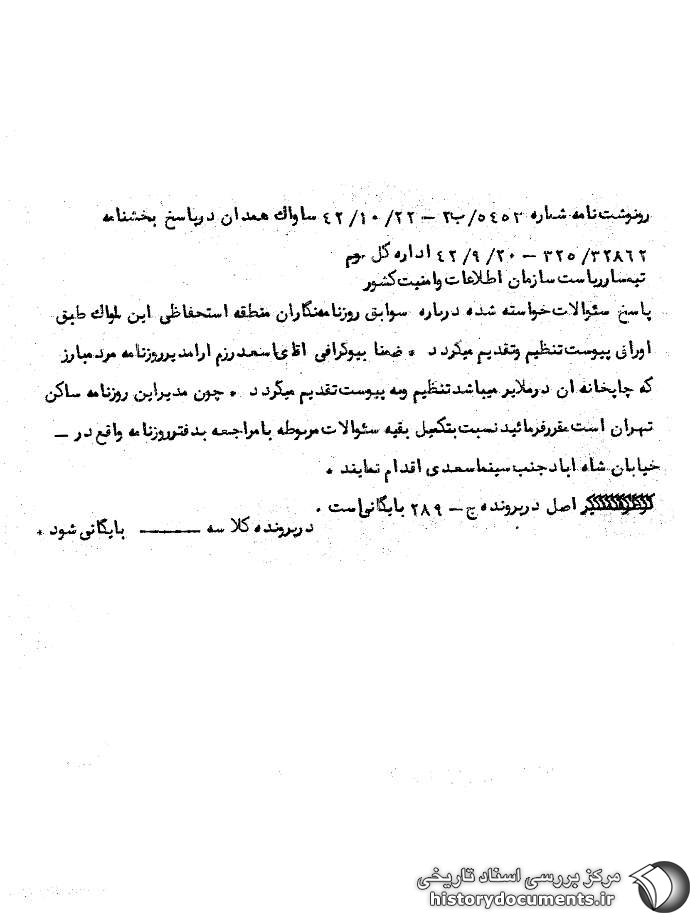 رونوشت نامه شماره ۵۴۵۳/ب۲ – ۴۲/۱۰/۲۲ ساواك همدان درپاسخ بخشنامه
۳۲۵/۳۲۸۶۲ – ۴۲/۹/۲۰ اداره كل سوم
تیمسار ریاست سازمان اطلاعات وامنیت كشور
پاسخ سئوالات خواسته شده درباره سوابق روزنامه نگاران منطقه استحفاظی این ساواك طبق
اوراق پیوست تنظیم وتقدیم میگردد ۰ ضمنا بیوگرافی اقای اسعد رزم ارا مدیر روزنامه مرد مبارز
كه چاپخانه ان درملایر میباشد تنظیم وبه پیوست تقدیم میگردد ۰ چون مدیر این روزنامه ساكن
تهران است مقررفرمائید نسبت بتكمیل بقیه سئوالات مربوطه با مراجعه بدفتر روزنامه واقع در –
خیابان شاه اباد جنب سینما سعدی اقدام نمایند ۰
اصل درپرونده ج – ۲۸۹ بایگانی است ۰
درپرونده كلاسه ــــــــ بایگانی شود ۰
مرکز بررسی اسناد تاریخی
historydocuments.ir